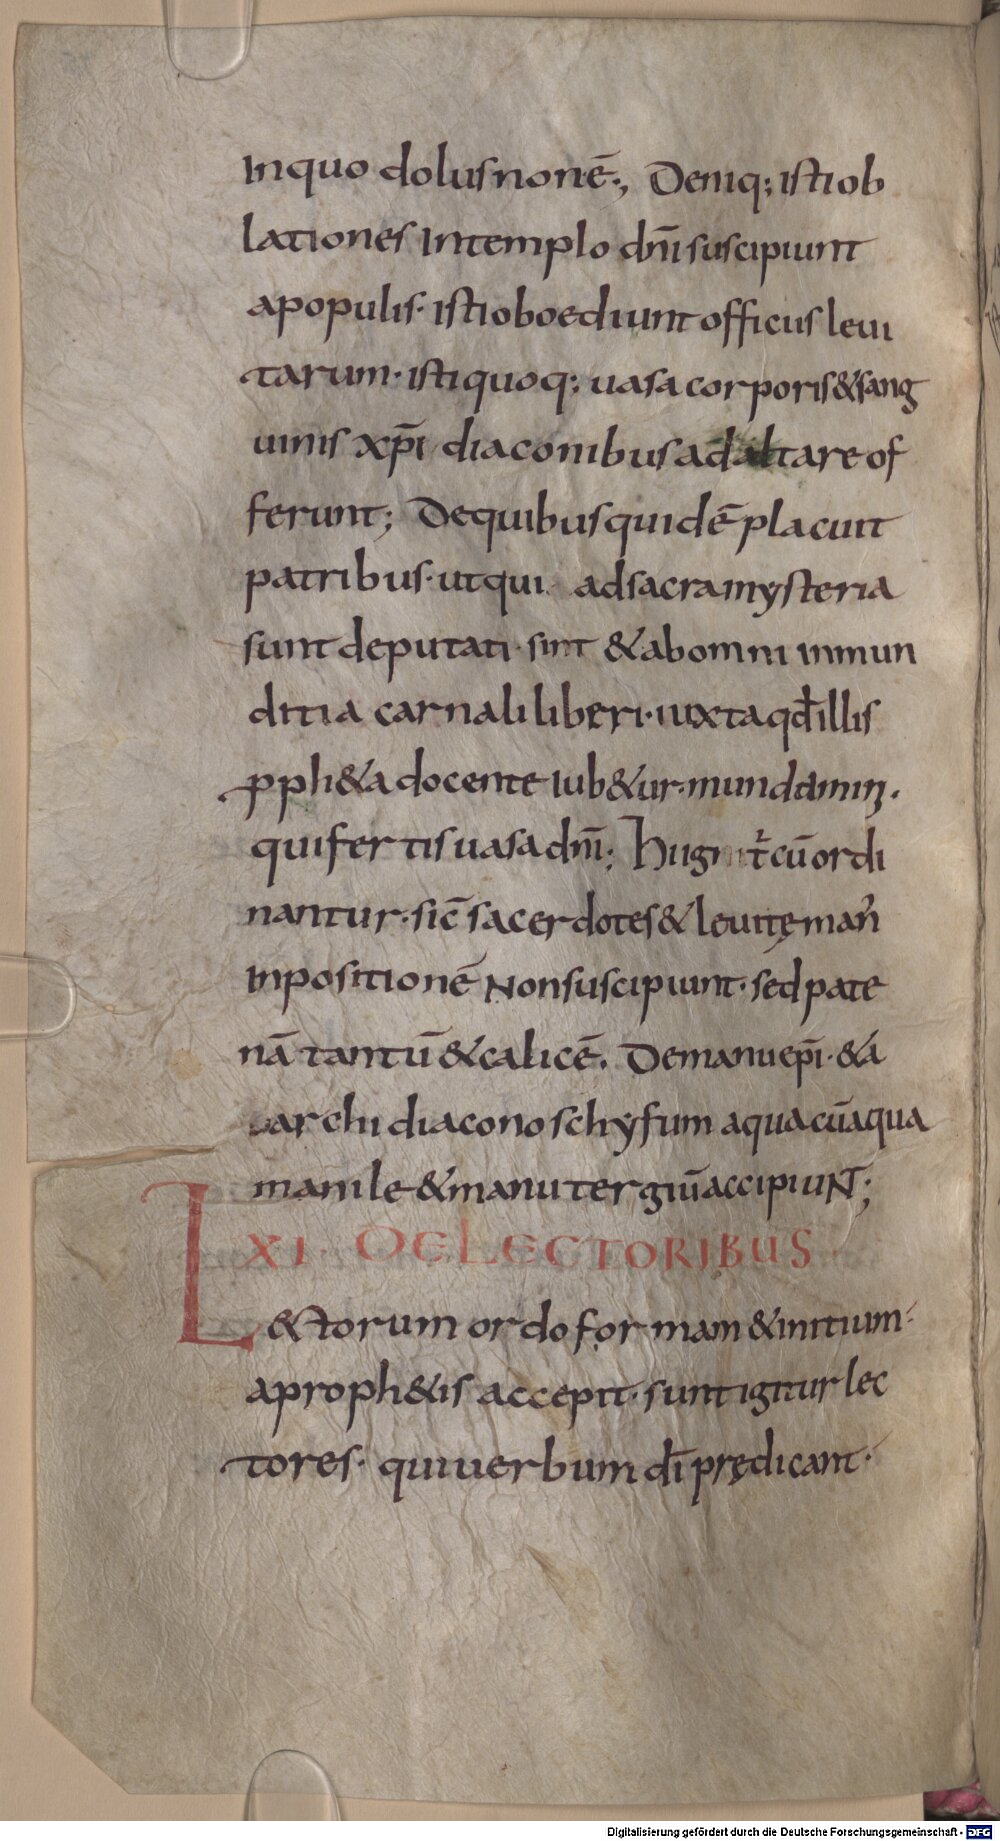 In quo dolus non ē., Deniq; isti ob
lationes In templo dn̄i suscipiunt
a populis· isti oboediunt officiis leui
tarum· isti quoq; uasa corporis & sang
uinis xp̄i diaconibus ad altare of
ferunt; De quibus quidē placuit
patribus· ut qui ad sacra mysteria
sunt deputati· sint & ab omni inmun
ditia carnali liberi· iuxta qd̄ illis
pph&a docente Iub&ur· mundamin̄.
qui fertis uasa dn̄i; cū ordi
nantur· sic̄ sacerdotes & leuitę man̄
Inpositionē Non suscipiunt· sed pate
nā tantū & calicē. De manu ep̄i· & a
archidiacono schyfum aquae cū aqua
manile & manutergiū accipiuNT;
XI DE LECTORIBUS
L&torum ordo formam & initium·
a proph&is accepit· sunt igitur lec
tores· qui uerbum dī prędicant·
Digitalisierung gefördert durch die Deutsche Forschungsgemeinschaft - DFG